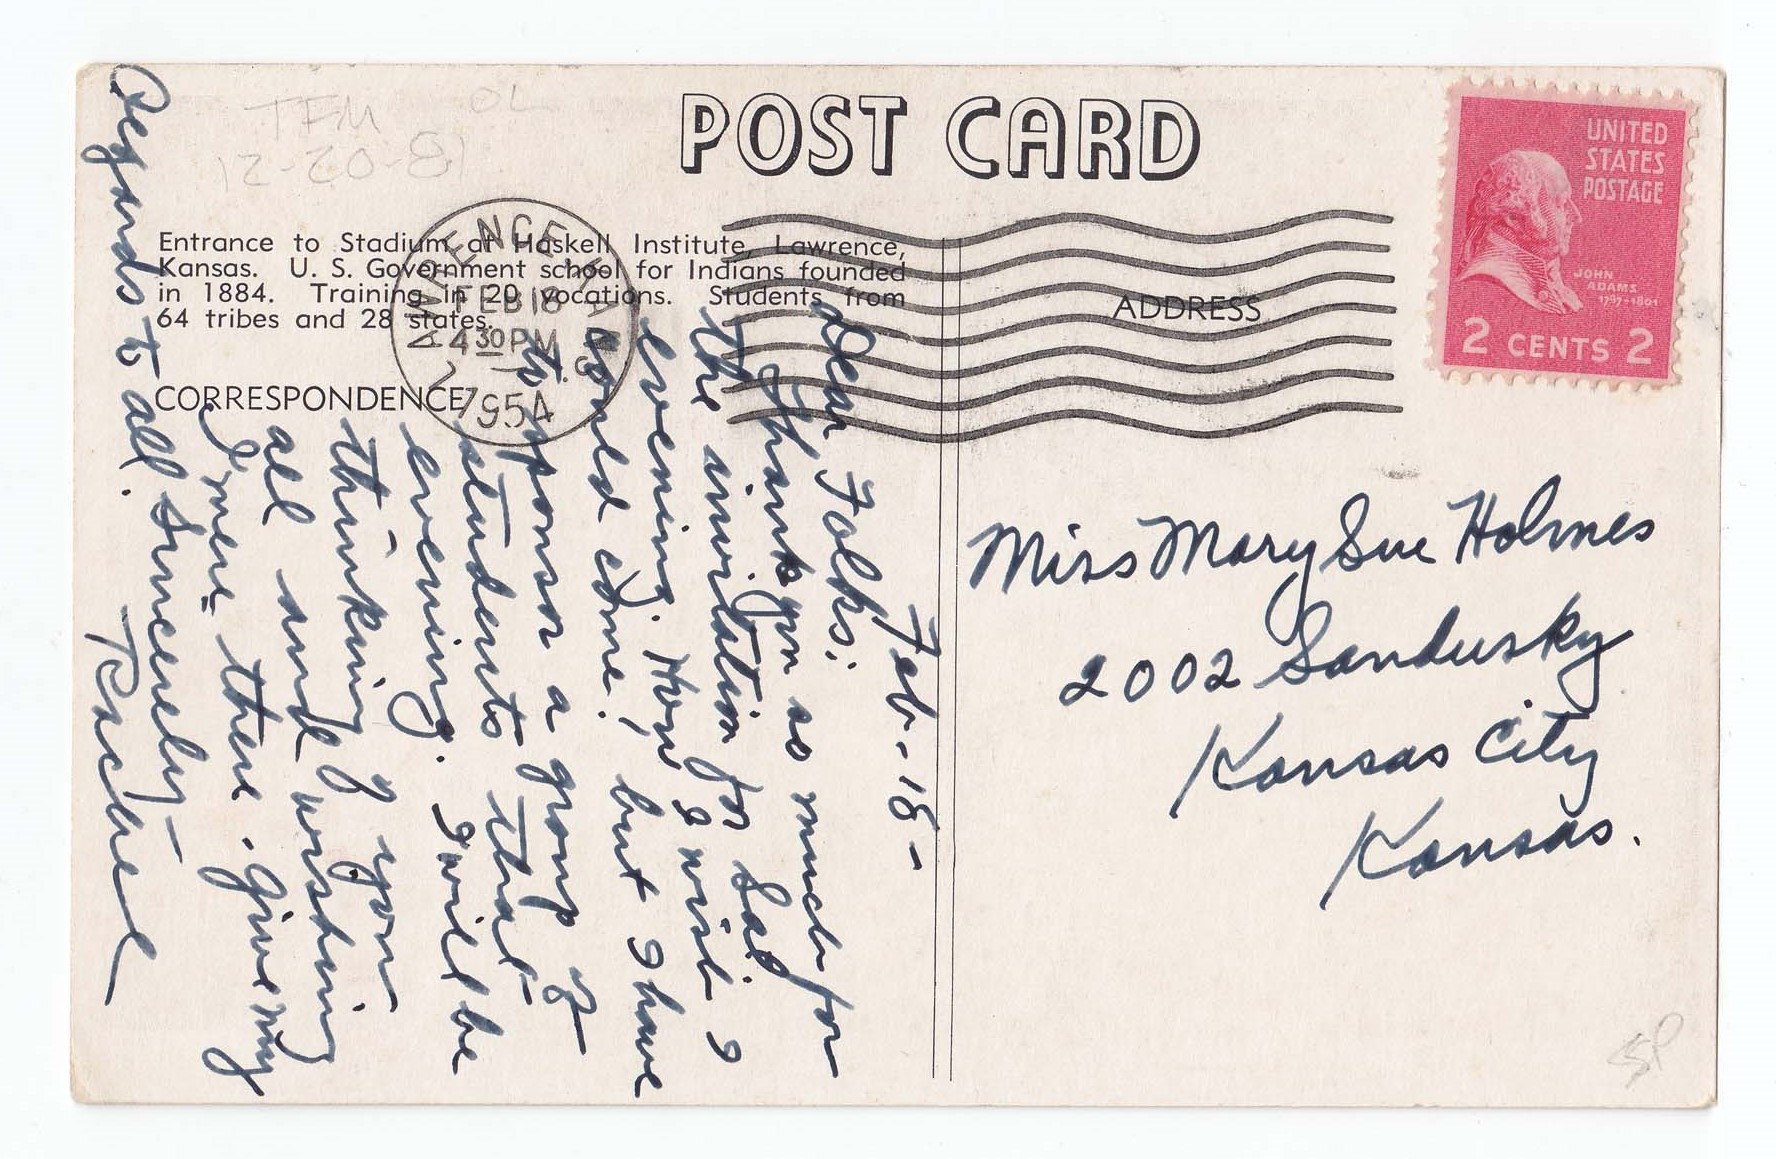 POST CARD
TFM OL
12-20-81
Entrance to Stadium at Haskell Institute, Lawrence,
Kansas. U. S. Government school for Indians founded
in 1884. Training in 20 vocations. Students from
64 tribes and 28 states.
CORRESPONDENCE
ADDRESS
LAWRENCE, KANS.
FEB 18
4 30 PM
1954
UNITED
STATES
POSTAGE
JOHN
ADAMS
1797-1801
2 CENTS 2
Feb-18-
Dear Folks:
Thank you so much for
the invitation for Sat.
evening. How I wish I
could come, but I have
to sponsor a group of
students that
evening. I will be
thinking of you
all and wishing
I were there. Give my
Regards to all. Sincerely-
Rachel
Miss Mary Sue Holmes
2002 Sandusky
Kansas City
Kansas.